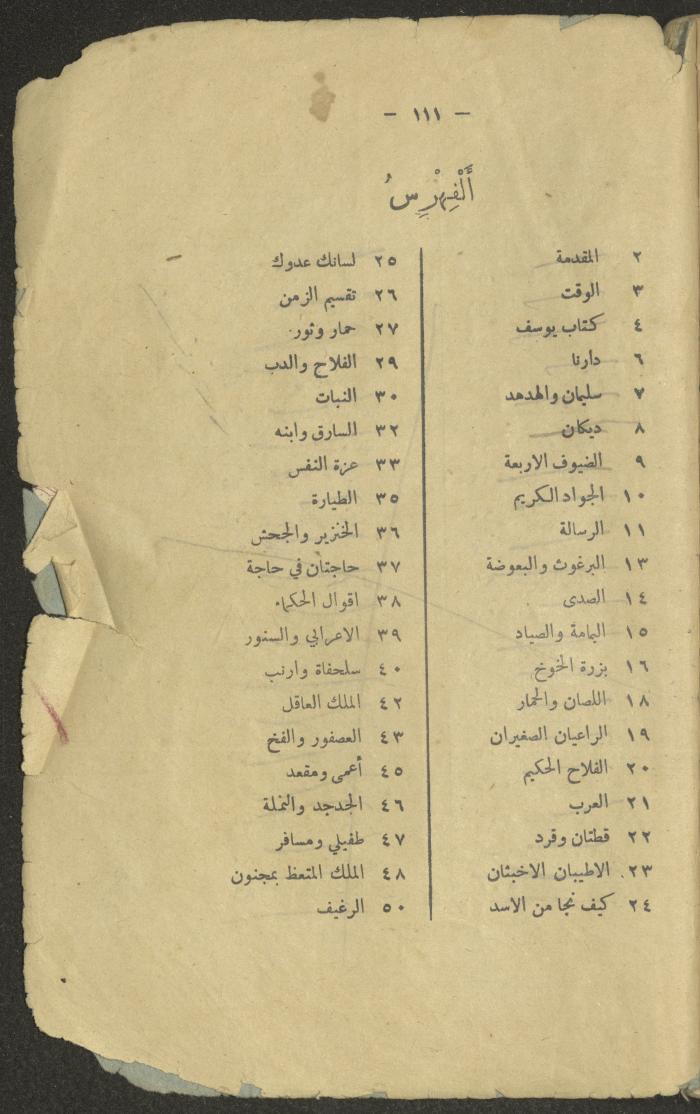 — ١١١ —
أَلْفِهْرِسُ
٢ المقدمة
٣ الوقت
٤ كتاب يوسف
٦ دارنا
٧ سليمان والهدهد
٨ ديكان
٩ الضيوف الاربعة
١٠ الجواد الكريم
١١ الرسالة
١٣ البرغوث والبعوضة
١٤ الصدى
١٥ اليمامة والصياد
١٦ بزرة الخوخ
١٨ اللصان والحمار
١٩ الراعيان الصغيران
٢٠ الفلاح الحكيم
٢١ العرب
٢٢ قطتان وقرد
٢٣ الاطيبان الاخبثان
٢٤ كيف نجا من الاسد
٢٥ لسانك عدوك
٢٦ تقسيم الزمن
٢٧ حمار وثور
٢٩ الفلاح والدب
٣٠ النبات
٣٢ السارق وابنه
٣٣ عزة النفس
٣٥ الطيارة
٣٦ الخنزير والجحش
٣٧ حاجتان في حاجة
٣٨ اقوال الحكماء
٣٩ الاعرابي والسنور
٤٠ سلحفاة وارنب
٤٢ الملك العاقل
٤٣ العصفور والفخ
٤٥ أعمى ومقعد
٤٦ الجدجد والنملة
٤٧ طفيلي ومسافر
٤٨ الملك المتعظ بمجنون
٥٠ الرغيف